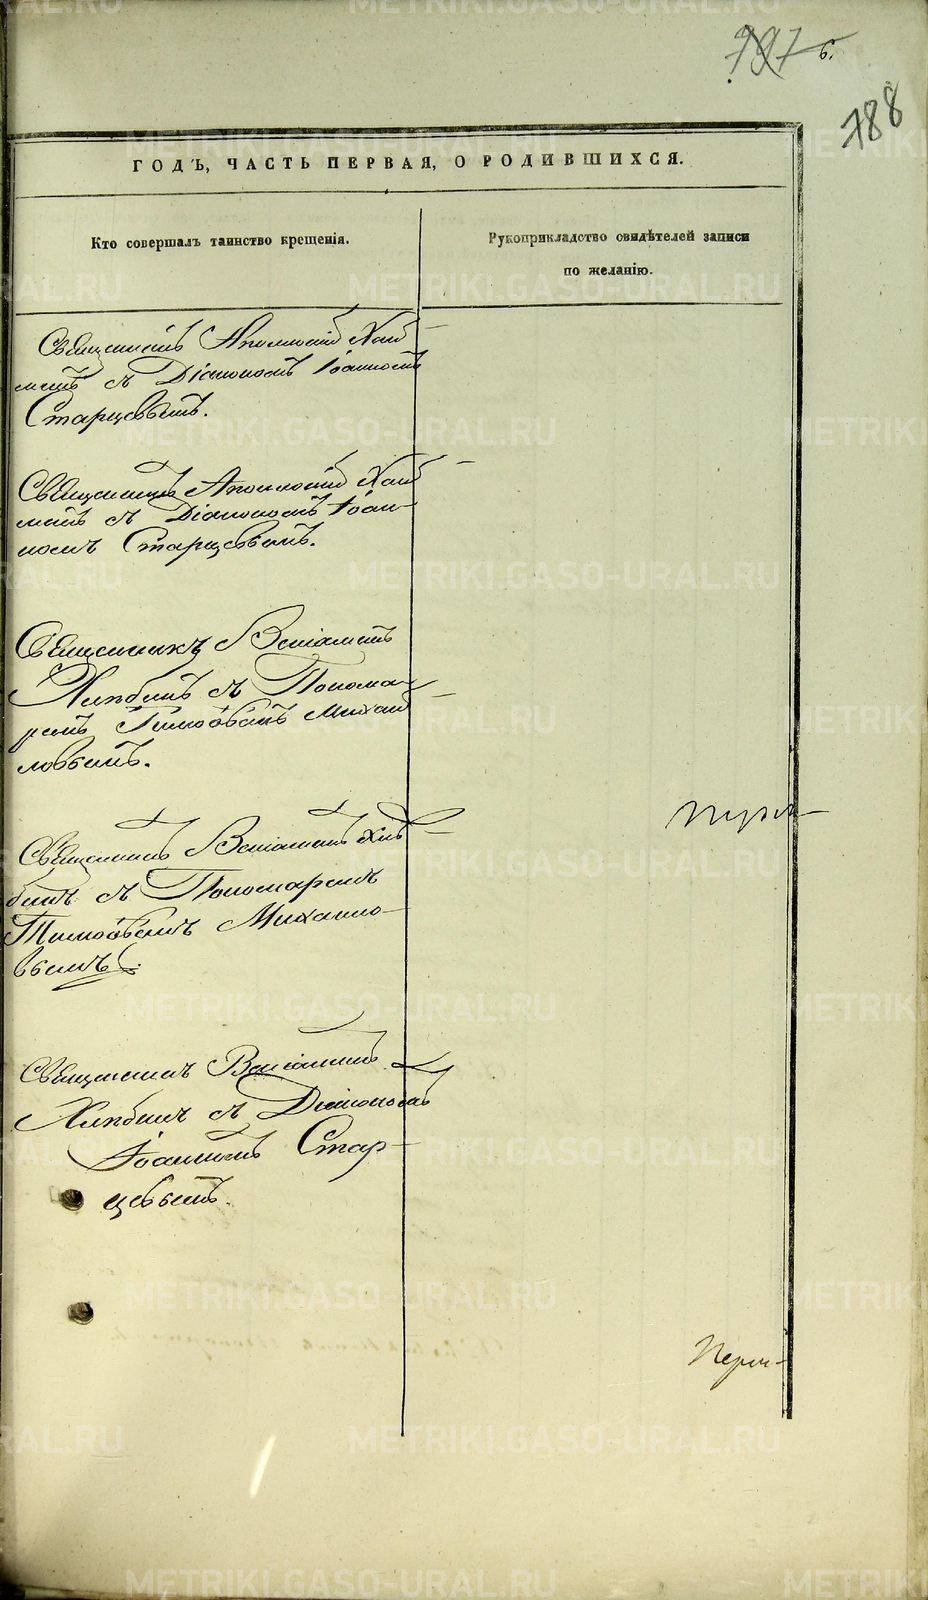 797 6.
788
ГОДЪ, ЧАСТЬ ПЕРВАЯ, О РОДИВШИХСЯ.
Кто совершалъ таинство крещенія.
Рукоприкладство свидѣтелей записи
по желанію.
Священникъ
съ Діакономъ Іоанномъ
Старцевымъ.
Священникъ
съ Діакономъ Іоан-
номъ Старцевымъ.
Священникъ Веніаминъ
Хлѣбинъ съ Понома-
ремъ Михаи
ловымъ.
Священникъ Веніаминъ Хлѣ
бинъ съ Пономаремъ
Михаило-
вымъ.
Священникъ Веніаминъ
Хлѣбинъ съ Діакономъ
Іоанномъ Стар-
цевымъ.
METRIKI.GASO-URAL.RU